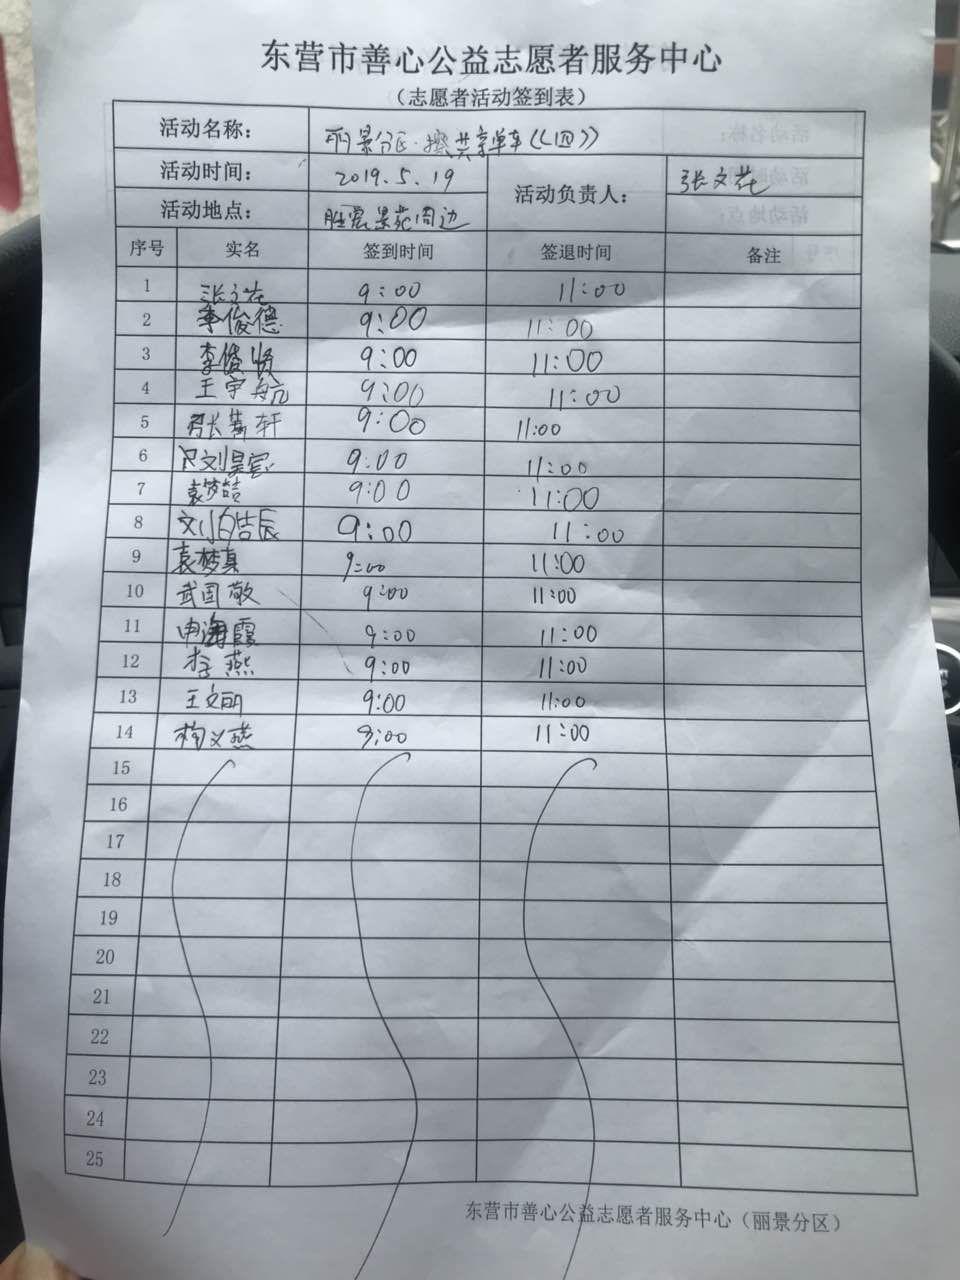 东营市善心公益志愿者服务中心
（志愿者活动签到表）
活动名称： 丽景分区·擦共享单车《《四》》
活动时间： 2019.5.19 活动负责人： 张文花
活动地点： 胜宏景苑周边
序号 实名 签到时间 签退时间 备注
1 张文花 9:00 11:00
2 李俊德 9:00 11:00
3 李俊贤 9:00 11:00
4 王宇航 9:00 11:00
5 张 轩 9:00 11:00
6 刘昊 9:00 11:00
7 袁梦喆 9:00 11:00
8 刘皓辰 9:00 11:00
9 袁梦真 9:00 11:00
10 武国敬 9:00 11:00
11 申海霞 9:00 11:00
12 李燕 9:00 11:00
13 王文明 9:00 11:00
14 义燕 9:00 11:00
15
16
17
18
19
20
21
22
23
24
25
东营市善心公益志愿者服务中心（丽景分区）